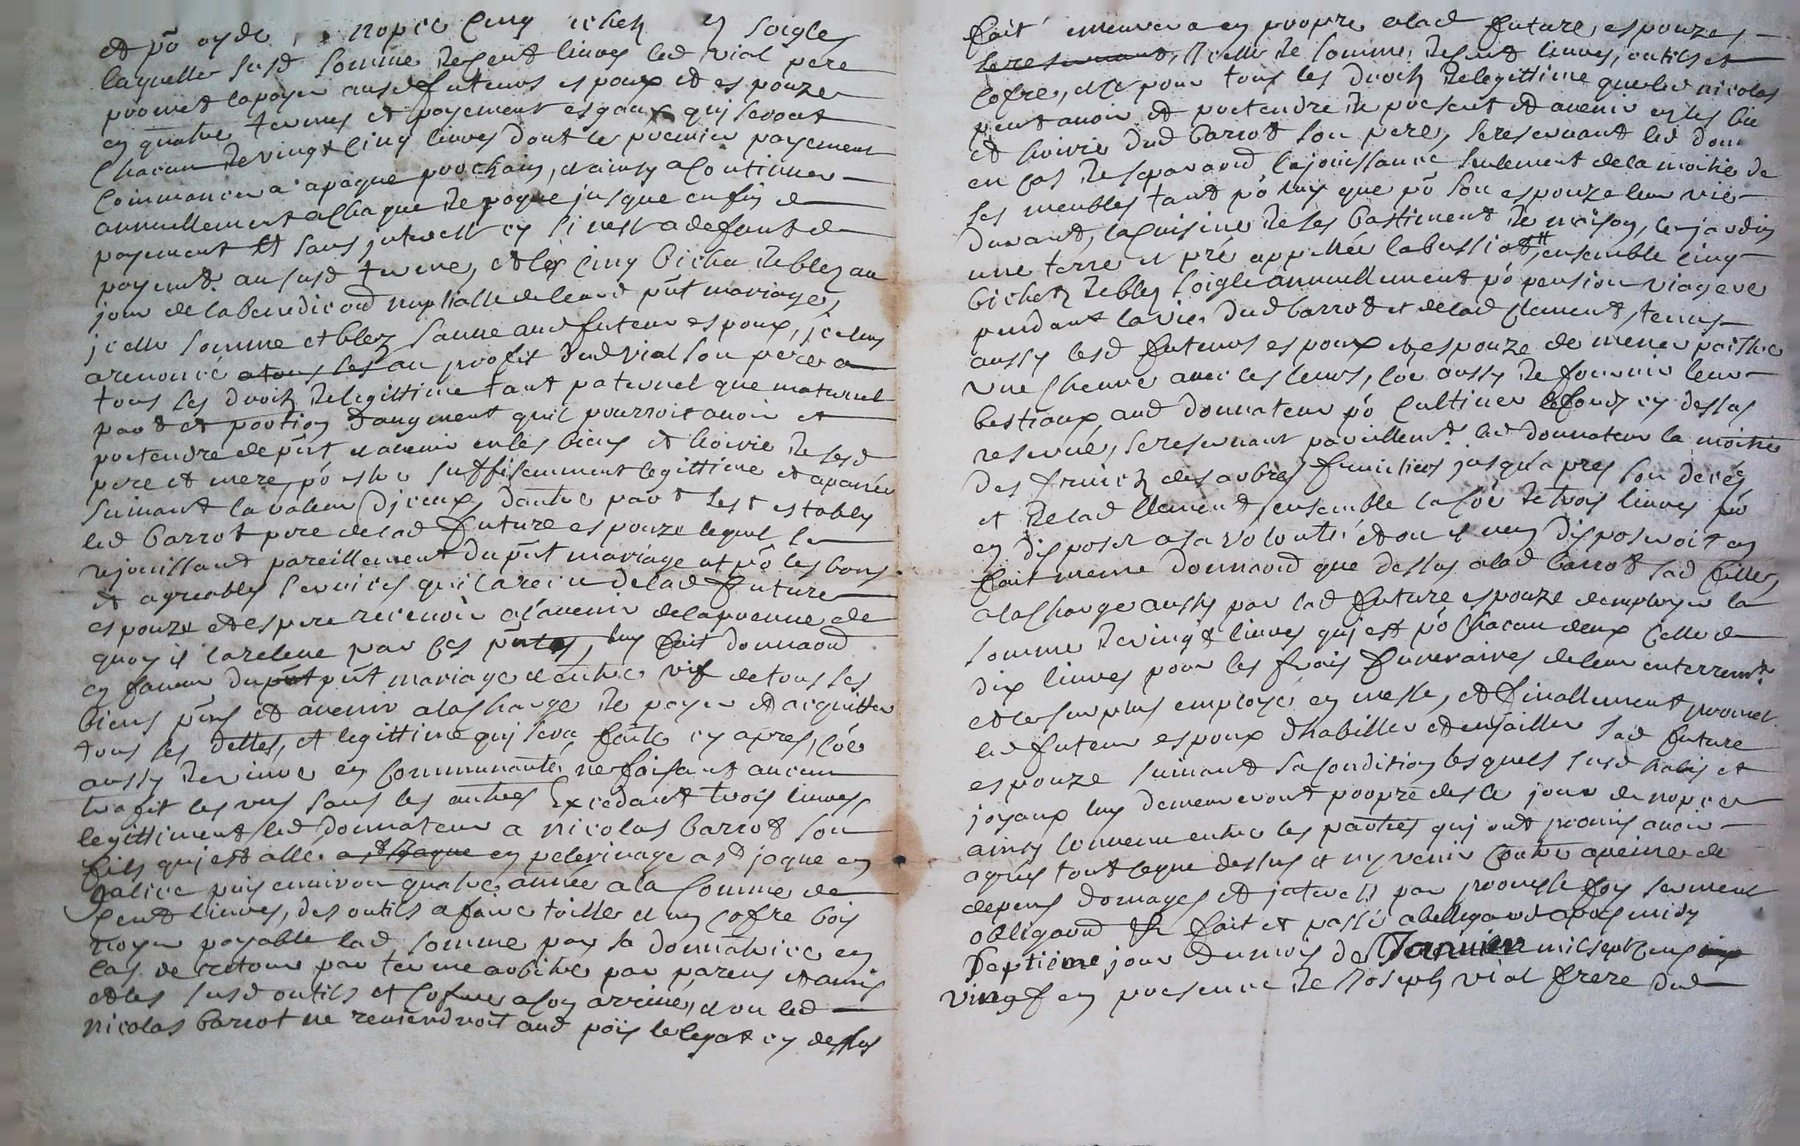 et po ayde nopce cinq bichetz soigle
laquelle susd somme de cent livres led vial pere
promet la payer ausd futeurs espoux et espouze
en quatre termes et payement esgaux qui seront
chacun de vingt cinq livres dont le premier payement
commancera a paque prochain, et ainsy a continuer
annuellement a chaque de paque jusque en fin de
payement et sans interest cy si n'est a defaut de
payemt. au susd terme, et les cinq bichet de bled au
jour de la benediction nuptialle de leurd pnt mariage,
icelle somme et bled sauve aud futeur espoux, icelluy
a renoncé a tous les au profit dud vial son pere a
tous les droitz de legittime tant paternel que maternel
part et portion d'augment quil pourroit avoir et
pretendre de pnt et avenir en les biens et hoirie de sesd
pere et mere, po estre suffisemment legittimé et apané
suivant la valeur d'iceux, d'autre part s'est estably
led barrot pere de lad future espouze lequel se
rejouissant pareillement du pnt mariage et po les bons
et agreables services qu'il a receu de lad future
espouze et espere recevoir a l'avenir de la preuve de
quoy il la releve par ces pntes, luy fait donnaond
en faveur du pnt pnt mariage d'entre vif de tous ses
biens pns et avenir a la charge de payer et acquitter
tous ses dettes, et legittime qui sera faite cy apres, coe
aussy de vivre en communauté, ne faisant aucun
trafit les uns sans les autres excedant trois livres,
legittiment led donnateur a nicolas barrot son
fils qui est allé a st Jaque en pelerinage a st jaque en
galice puis environ quatre année a la somme de
cent livres, des outils a faire toille et un cofre bois
noyer payable lad somme par sa donnatrice en
cas de retour par terme arbitre par parens et amis
et les susd outils et cofre a son arrivee, et ou led
nicolas barrot ne reviendroit aud païs le legat cy dessus
fait demeurera en propre a lad future espouze,
se reservant, icelle de somme de cent livres, outils et
cofre, est pour tous les droitz de legittime que led nicolas
peut avoir et pretendre de present et avenir en les bie
et hoirie dud barrot son pere, se reservant led don
en cas de separaond la jouissance seulement de la moitié de
ses meubles tant po luy que po son espouze leur vie
durant, la cuisine de ses bastiment de maison, le jardin
une terre et pré appellée la bussiot, ensemble cinq
bichetz de bled soigle annuellement po pension viagere
pendant la vie dud barrot et de lad Clement, tenus
aussy lesd futeurs espoux et espouze de mener paistre
une chevre avec les leurs, coe aussy de fournir leur
bestiaux aud donnateur po cultiver le fonds cy dessus
reservé, se reservant pareillemt. led donnateur la moitié
des fruictz des arbres fruictiers jusqu'a pres son decés
et de lad Clement, ensemble la soe de trois livres po
en disposer a sa volonté et ou il n'en disposeroit en
fait meme donnaond que dessus a lad barrot sad fille,
a la charge aussy par lad future espouze d'employer la
somme de vingt livres qui est po chacun deux celle de
dix livres pour les frais funeraires de leur enterremt.
et le surplus employé en messe, et finallement promet
led futeur espoux d'habiller et enjailler sad future
espouze suivant sa condition lesquels susd habis et
joyaux luy demeureront propre des le jour de nopces
ainsy convenu entre les parties qui ont promis avoir
agreé tout le que dessus et n'y venir contre a peine de
depens domages et interetz par promesse foy serment
obligaond & fait et passé a bellegarde apres midy
septieme jour du mois de Janvier mil sept cens
vingt en presence de Joseph vial frere dud